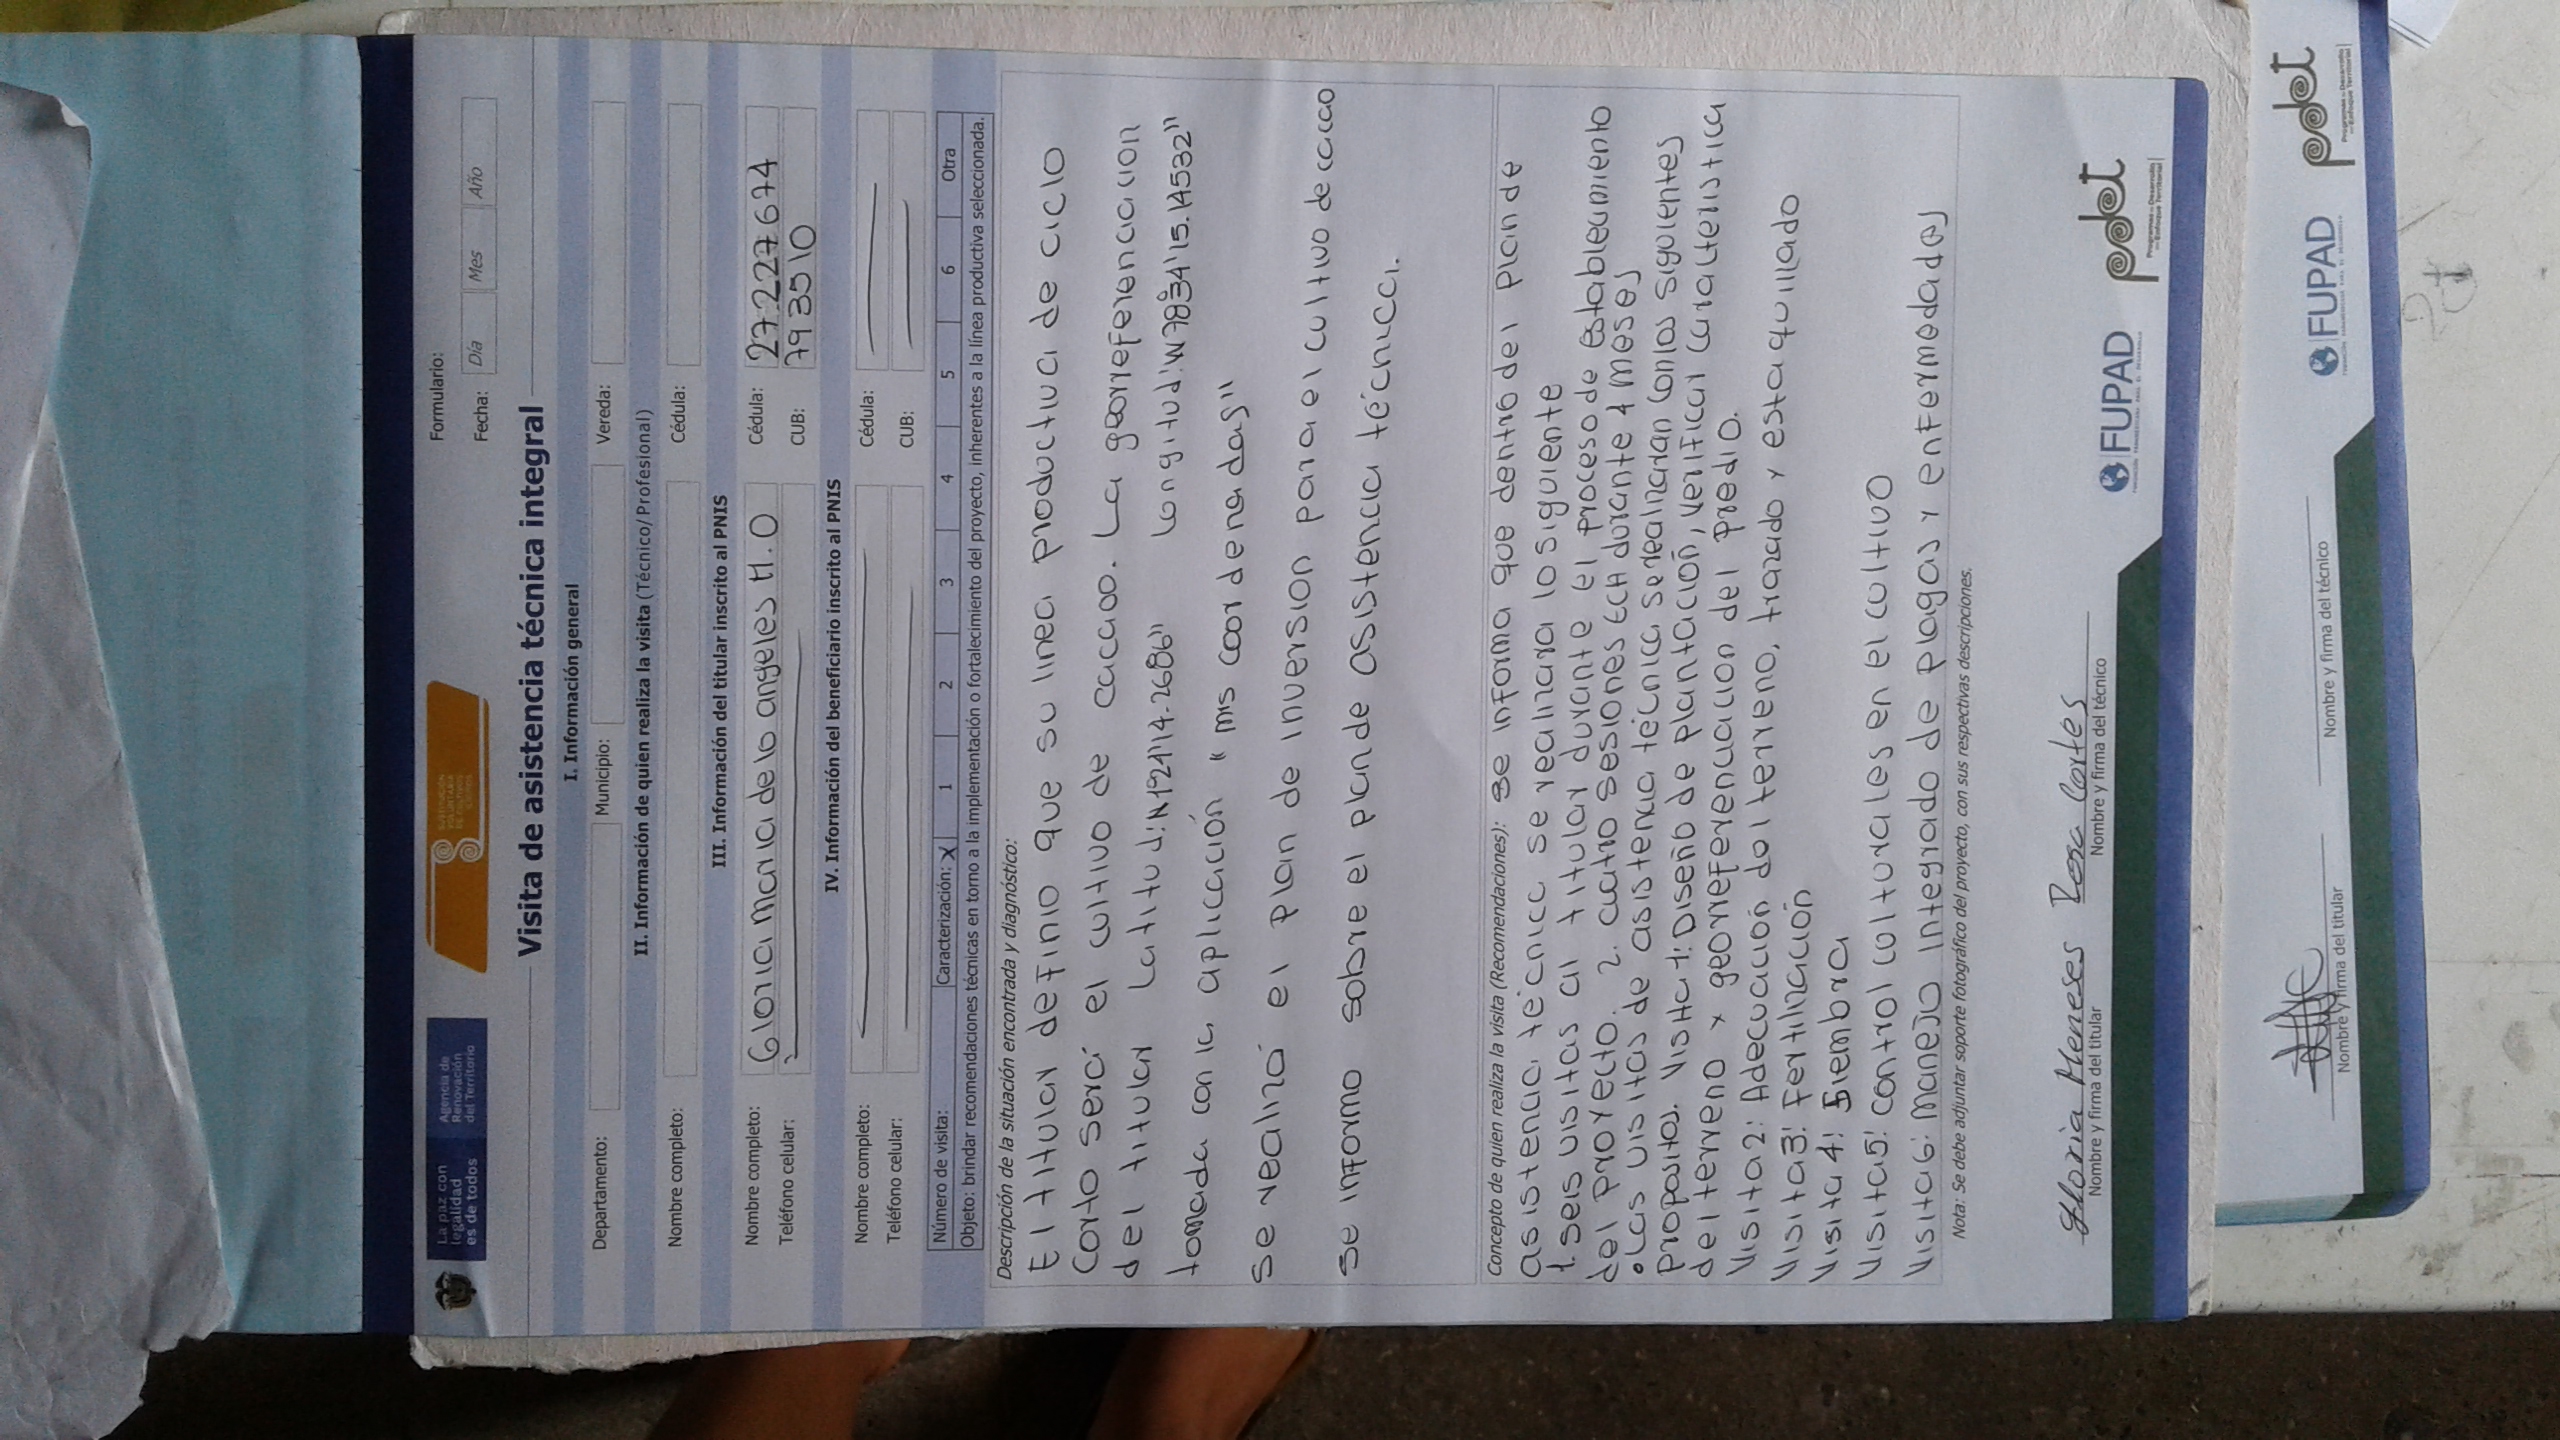 La paz con
legalidad
es de todos
Agencia de
Renovación
del Territorio
SUSTITUCIÓN
VOLUNTARIA
DE CULTIVOS
ILÍCITOS
Formulario:
Fecha: Día Mes Año
Visita de asistencia técnica integral
I. Información general
Departamento: Municipio: Vereda:
II. Información de quien realiza la visita (Técnico/ Profesional)
Nombre completo: Cédula:
III. Información del titular inscrito al PNIS
Nombre completo: Gloria Maria de lo angeles M.O Cédula: 272227674
Teléfono celular: CUB: 793510
IV. Información del beneficiario inscrito al PNIS
Nombre completo: Cédula:
Teléfono celular: CUB:
Número de visita: Caracterización: X 1 2 3 4 5 6 Otra
Objeto: brindar recomendaciones técnicas en torno a la implementación o fortalecimiento del proyecto, inherentes a la línea productiva seleccionada.
Descripción de la situación encontrada y diagnóstico:
El titular definio que su linea productiva de ciclo
corto será el cultivo de cacao. La georreferenciacion
del titular Latitud: Longitud:
tomada con la aplicación "mis coordenadas"
Se realizó el plan de inversion para el cultivo de cacao
se informo sobre el plan de asistencia técnica.
Concepto de quien realiza la visita (Recomendaciones): se informa que dentro del plan de
asistencia técnica se realizara lo siguiente
1. seis visitas al titular durante el proceso de establecimiento
del proyecto. 2. cuatro sesiones ECA durante 4 meses
• Las visitas de asistencia técnica se realizaran con los siguientes
propositos. Visita 1: Diseño de plantación, verificar caracteristica
del terreno y georreferenciacion del predio.
Visita 2: Adecuación del terreno, trazado y estaquillado
Visita 3: Fertilización
Visita 4: Siembra
Visita 5: Control culturales en el cultivo
Visita 6: Manejo integrado de plagas y enfermedades
Nota: Se debe adjuntar soporte fotográfico del proyecto, con sus respectivas descripciones.
Gloria Meneses Rosa Cortes
Nombre y firma del titular Nombre y firma del técnico
FUPAD
pdet
Programas de Desarrollo
con Enfoque Territorial
Nombre y firma del titular Nombre y firma del técnico
FUPAD
pdet
Programas de Desarrollo
con Enfoque Territorial